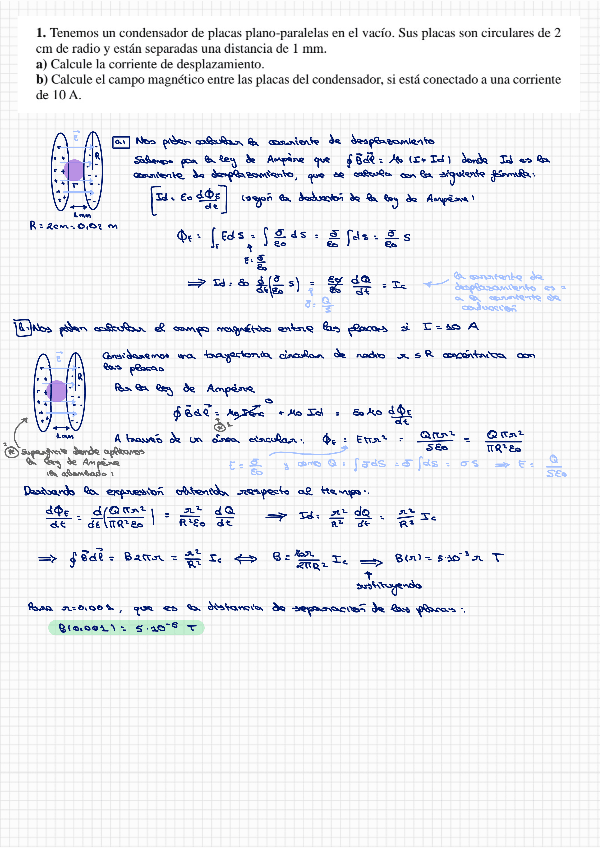 1. Tenemos un condensador de placas plano-paralelas en el vacío. Sus placas son circulares de 2
cm de radio y están separadas una distancia de 1 mm.
a) Calcule la corriente de desplazamiento.
b) Calcule el campo magnético entre las placas del condensador, si está conectado a una corriente
de 10 A.
a.) Nos piden calcular la corriente de desplazamiento
Sabemos por la ley de Ampère que ∮B⃗dl⃗ = μ0 (I + Id) donde Id es la
corriente de desplazamiento, que se calcula con la siguiente fórmula:
[Id = ε0 dΦE/dt] (según la deducción de la ley de Ampère)
1mm
R = 2cm = 0,02 m
ΦE = ∫ E ds = ∫ σ/ε0 ds = σ/ε0 ∫ ds = σ/ε0 S
E = σ/ε0
⇒ Id = ε0 d/dt (σ/ε0 S) = ε0/ε0 dQ/dt = Ic
σ = Q/S
la corriente de
desplazamiento es =
a la corriente de
conducción
b.) Nos piden calcular el campo magnético entre las placas si I = 10 A
Consideremos una trayectoria circular de radio r ≤ R concéntrica con
las placas
Por la ley de Ampère
∮ B⃗ dl⃗ = μ0 Ic + μ0 Id = ε0 μ0 dΦE/dt
1mm
A través de un área circular: ΦE = Eπr² = Qπr²/Sε0 = Qπr²/πR²ε0
Superficie donde aplicamos
la ley de Ampère
E = σ/ε0 y como Q = ∫σdS = σ∫dS = σS ⇒ E = Q/Sε0
Derivando la expresión obtenida respecto al tiempo:
dΦE/dt = d/dt (Qπr²/πR²ε0) = r²/R²ε0 dQ/dt ⇒ Id = r²/R² dQ/dt = r²/R² Ic
⇒ ∮ B⃗ dl⃗ = B2πr = r²/R² Ic ⇔ B = μ0r/2πR² Ic ⇒ B(r) = 5·10⁻³ r T
sustituyendo
Para r=0,001, que es la distancia de separación de las placas:
B(0,001) = 5·10⁻⁶ T